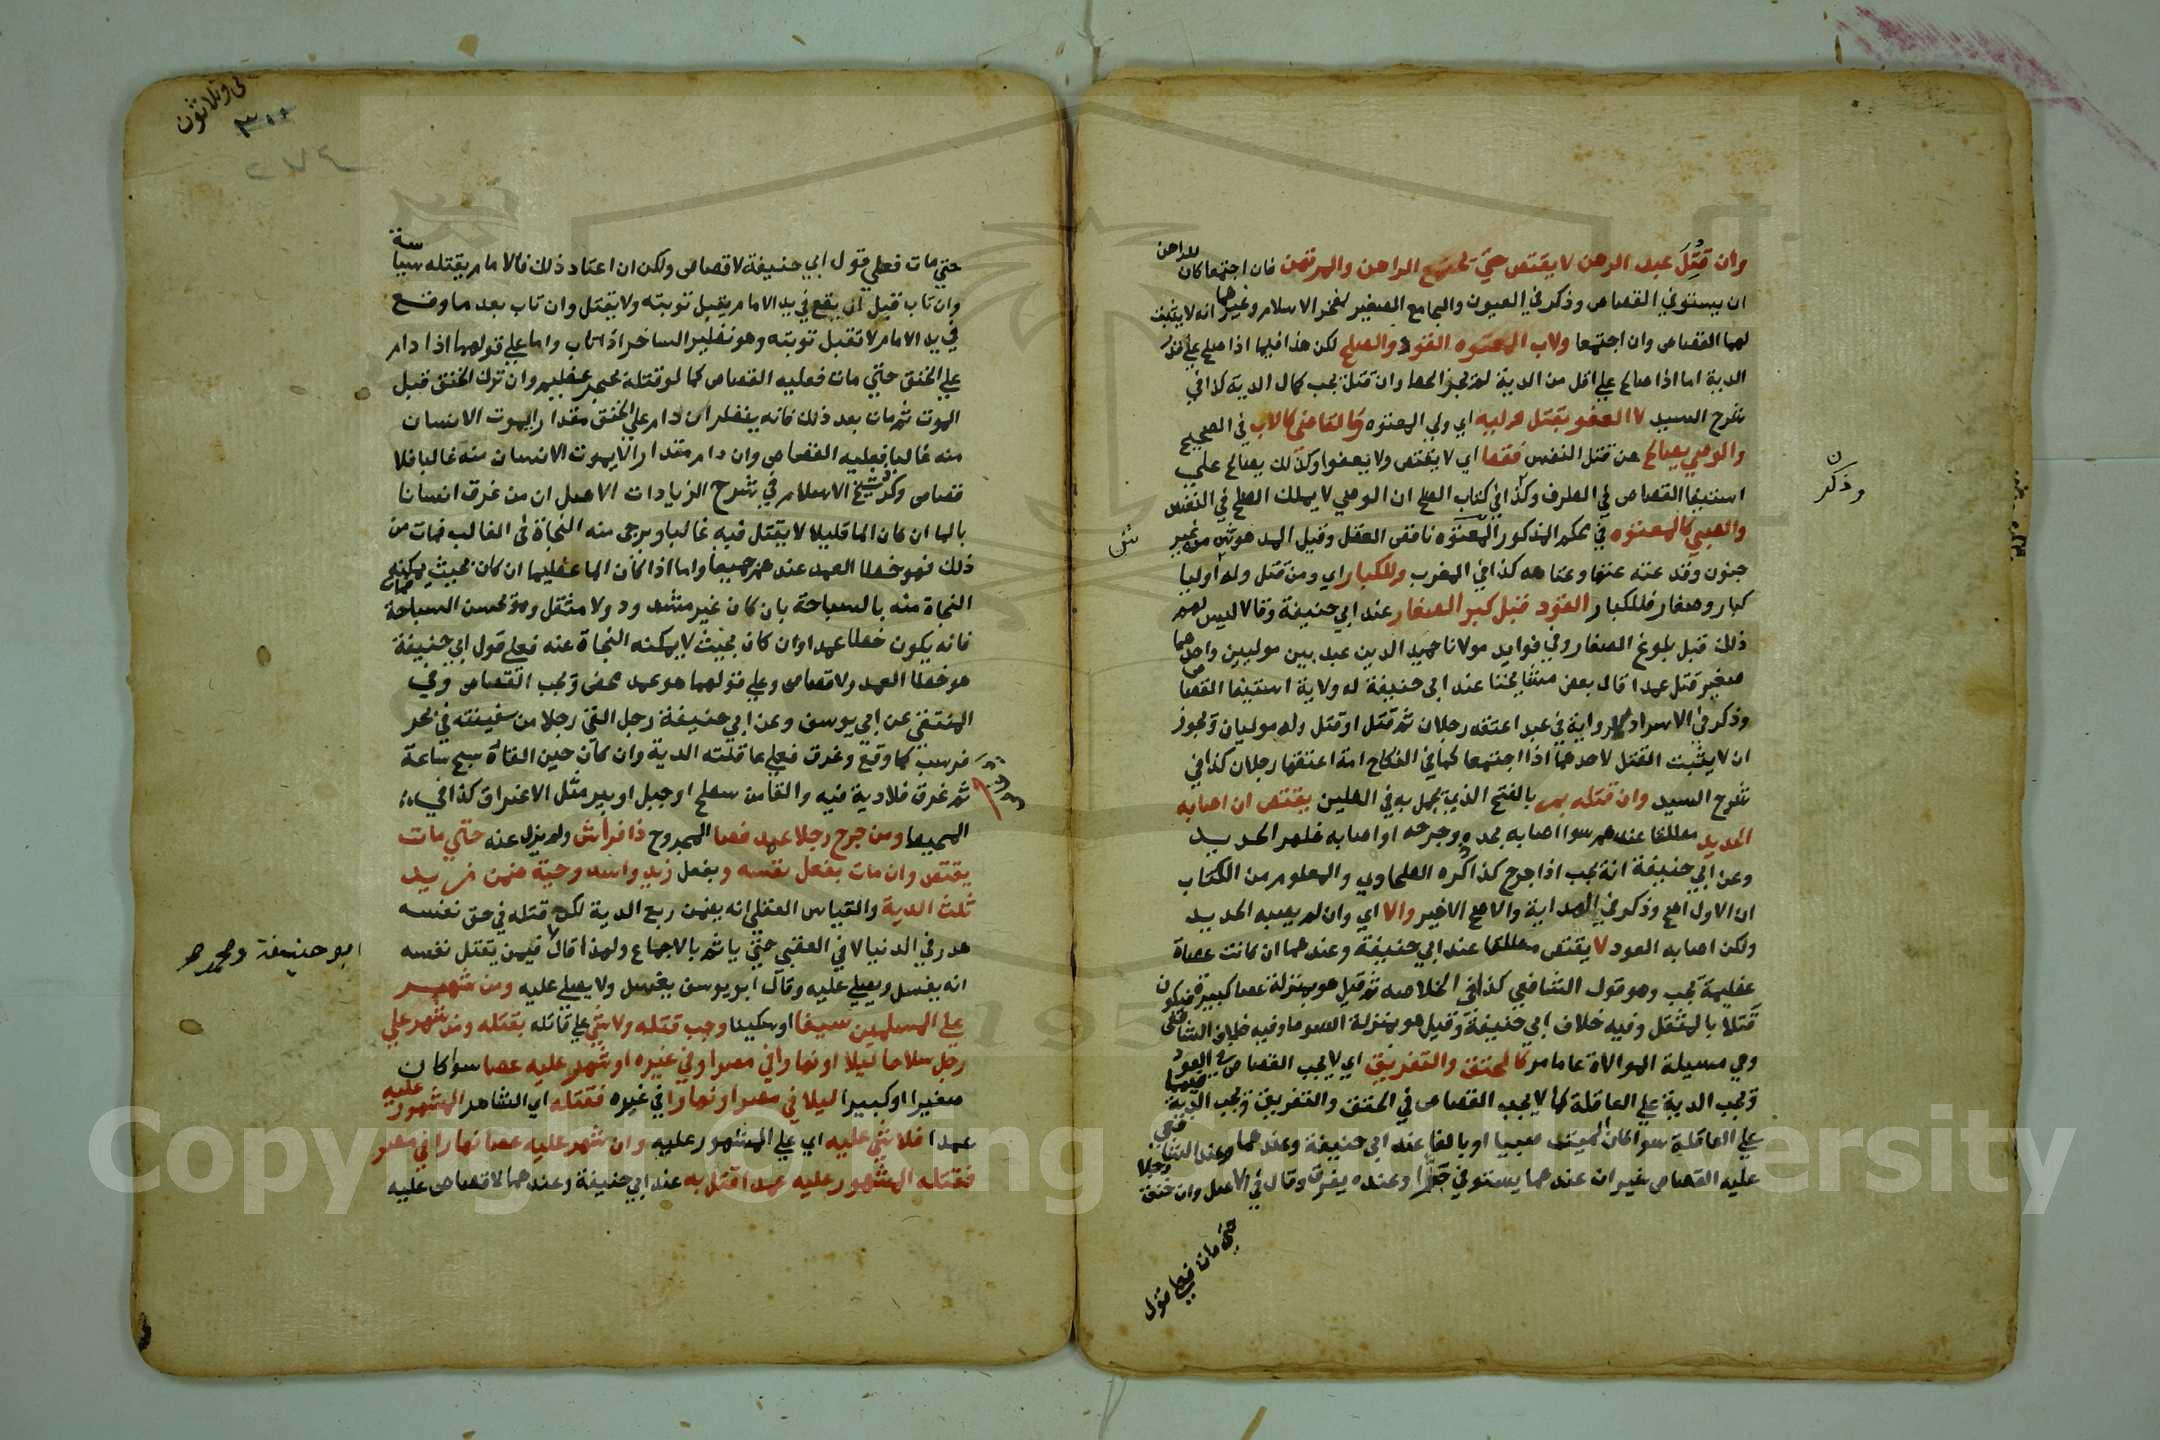 وان قتل عبد الرهن لا يقتص حتي يجتمع الراهن والمرتهن فان اجتمعا كان للراهن
ان يستوفي القصاص وذكر في العيون والجامع الصغير لفخر الاسلام وغيرهما انه لا يثبت
لهما القصاص وان اجتمعا ولاب المعتوه القود والصلح لكن هذا فيما اذا صلح علي قدر
الدية اما اذا صالح علي اقل من الدية لم يجز الحط وان قتل يجب كمال الدية كذا في
شرح السيد لا العفو بقتل وليه اي ولي المعتوه والقاضي كالاب في الصحيح
والوصي يصالح عن قتل النفس فقط اي لا يقتص ولا يعفوا وكذلك يصالح علي
استيفا القصاص في الطرف وكذا في كتاب الصلح ان الوصي لا يملك الصلح في النفس
والصبي كالمعتوه في حكم المذكور المعتوه ناقص العقل وقيل المدهوش من غير
جنون وقد عته عتها وعتاهه كذا في المغرب وللكبار اي ومن قتل وله اوليا
كبار وصغار فللكبار القود قبل كبر الصغار عند ابي حنيفة وقالا ليس لهم
ذلك قبل بلوغ الصغار وفي فوايد مولانا حميد الدين عبد بين موليين واحدهما
صغير قتل عمدا قال بعض مشايخنا عند ابي حنيفة له ولاية استيفا القصاص
وذكر في الاسرار رواية في عبد اعتقه رجلان ثم قتل او قتل وله موليان ويجوز
ان لا يثبت القتل لاحدهما اذا اجتمعا كما في النكاح امة اعتقها رجلان كذا في
شرح السيد وان قتله بمر بالفتح الذي يعمل به في الطين يقتص ان اصابه
الحديد مطلقا عندهم سوا اصابه بحده وجرحه او اصابه ظهر الحديد
وعن ابي حنيفة انه يجب اذا جرح كذا ذكره الطحاوي والمعلوم من الكتاب
ان الاول اصح وذكر في الهداية والاصح الاخير والا اي وان لم يصبه الحديد
ولكن اصابه العود لا يقتص مطلقا عند ابي حنيفة وعندهما ان كانت عصاة
عظيمة يجب وهو قول الشافعي كذا في الخلاصه ثم قيل هو بمنزلة عصا كبيرة فيكون
قتلا بالمثقل وفيه خلاف ابي حنيفة وقيل هو بمنزلة السوط وفيه خلاف الشافعي
وهي مسيلة الموالاة علي ما مر كالخنق والتغريق اي لا يجب القصاص في العود
وتجب الدية علي العاقلة كما لا يجب القصاص في الخنق والتغريق وتجب الدية فيهما
علي العاقلة سوا كان الميت صبيا او بالغا عند ابي حنيفة وعندهما وعند الشافعي
عليه القصاص غير ان عندهما يستوفي حزا وعنده يغرق وقال في الاصل وان خنق رجلا
حتي مات فعلي قول
وذكر
حتي مات فعلي قول ابي حنيفة لا قصاص ولكن ان اعتاد ذلك فالامام يقتله سياسة
وان تاب قبل ان يقع في يد الامام يقبل توبته ولا يقتل وان تاب بعد ما وقع
في يد الامام لا تقبل توبته وهو نظير الساحر اذا تاب واما علي قولهما اذا دام
علي الخنق حتي مات فعليه القصاص كما لو قتله بحجر عظيم وان ترك الخنق قبل
الموت ثم مات بعد ذلك فانه ينظر ان دام علي الخنق مقدار يموت الانسان
منه غالبا فعليه القصاص وان دام مقدار الا يموت الانسان منه غالبا فلا
قصاص وذكر شيخ الاسلام في شرح الزيادات الاصل ان من غرق انسانا
بالما ان كان الما قليلا لا يقتل فيه غالبا ويرجى منه النجاة في الغالب فمات من
ذلك فهو خطا العمد عندهم جميعا واما اذا كان الما عظيما ان كان بحيث يمكنه
النجاة منه بالسباحة بان كان غير مشدود ولا مثقل وهو يحسن السباحة فمات
فانه يكون خطا عمدا وان كان بحيث لا يمكنه النجاة عنه فعلي قول ابي حنيفة
هو خطا العمد ولا قصاص وعلي قولهما هو عمد محض وتجب القصاص وفي
المنتقي عن ابي يوسف وعن ابي حنيفة رجل القي رجلا من سفينته في بحر
فرسب كما وقع وغرق فعلي عاقلته الدية وان كان حين القاه سبح ساعة
ثم غرق فلا دية فيه والقا من سطح او جبل او بير مثل الاغراق كذا في
المحيط ومن جرح رجلا عمدا فصا المجروح ذا فراش ولم يزل عنه حتي مات
يقتص وان مات بفعل نفسه وبفعل زيد واسد وحية ضمن زيد
ثلث الدية والقياس العقلي انه يضمن ربع الدية لكن قتله في حق نفسه
هدر في الدنيا لا في العقبي حتي ياثم بالاجماع ولهذا قالا فيمن يقتل نفسه
انه يغسل ويصلي عليه وقال ابو يوسف يغسل ولا يصلي عليه ومن شهر
علي المسلمين سيفا او سكينا وجب قتله ولا شي علي قاتله بقتله ومن شهر علي
رجل سلاحا ليلا او نهارا في مصر او في غيره او شهر عليه عصا سوا كان
صغيرا او كبيرا ليلا في مصر او نهارا في غيره فقتله اي الشاهر المشهور عليه
عمدا فلا شي عليه اي علي المشهور عليه وان شهر عليه عصا نهارا في مصر
فقتله المشهور عليه عمدا قتل به عند ابي حنيفة وعندهما لا قصاص عليه
ابو حنيفة ومحمد
٣٠٠
٢٧٤